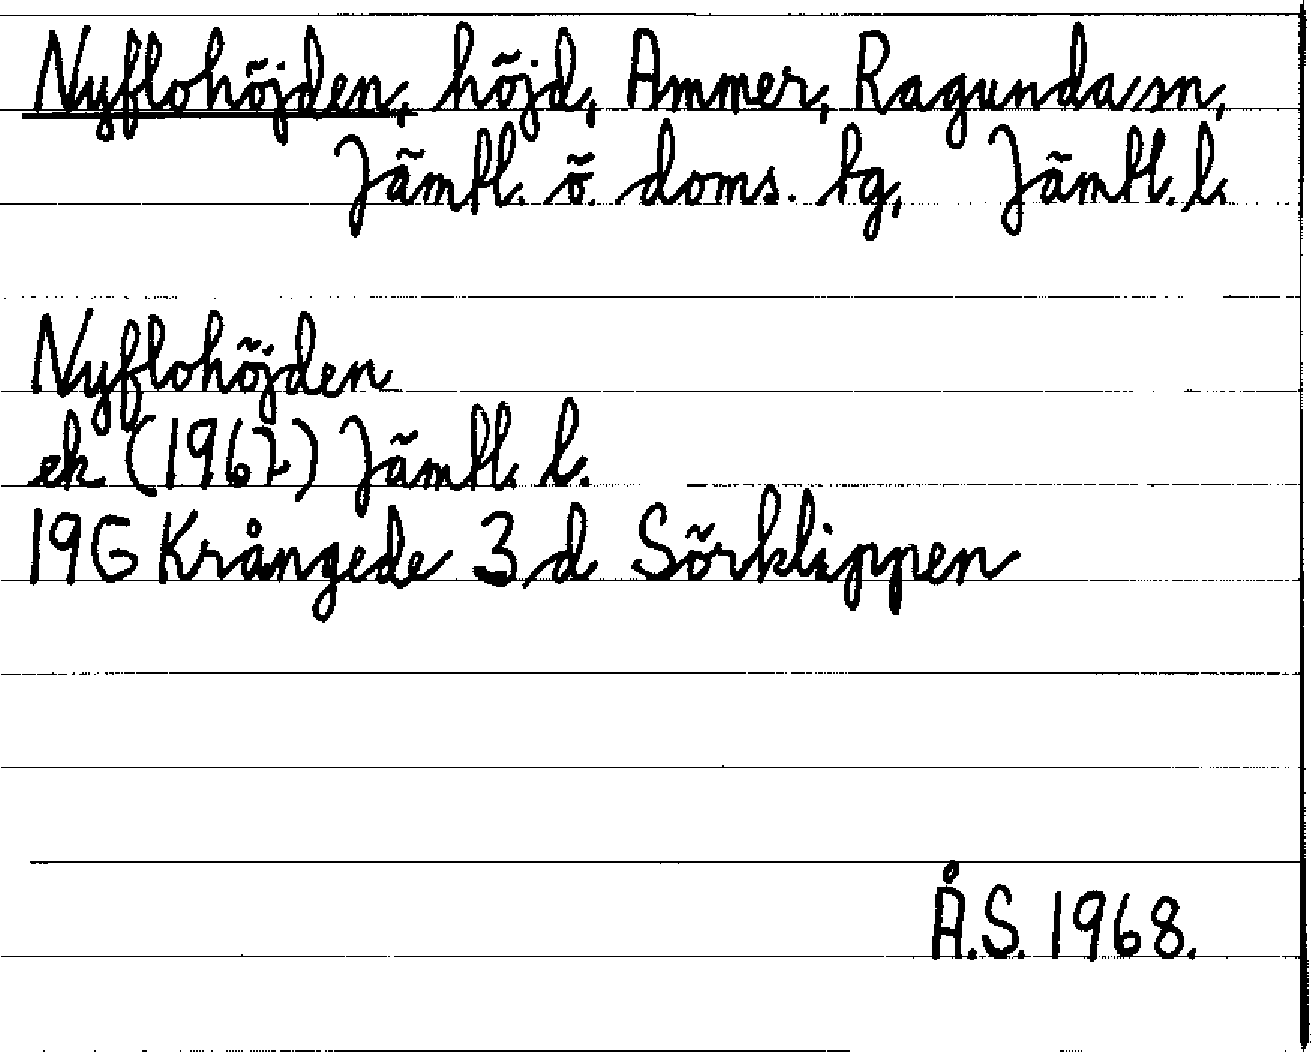 Nyflohöjden, höjd, Ammer, Ragunda sn,
Jämtl. ö. doms. tg, Jämtl. l.
Nyflohöjden
ek (1967) Jämtl. l.
19G Krångede 3 d Sörklippen
Å.S. 1968.